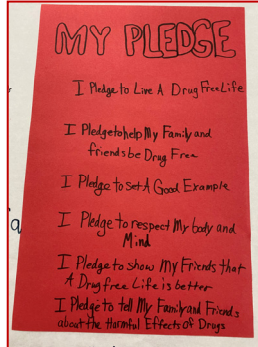 MY PLEDGE
I Pledge to Live A Drug Free Life
I Pledge to help My Family and
friends be Drug Free
I Pledge to set A Good Example
I Pledge to respect My body and
Mind
I Pledge to show My Friends that
A Drug free Life is better
I Pledge to tell My Family and Friends
about the Harmful Effects of Drugs